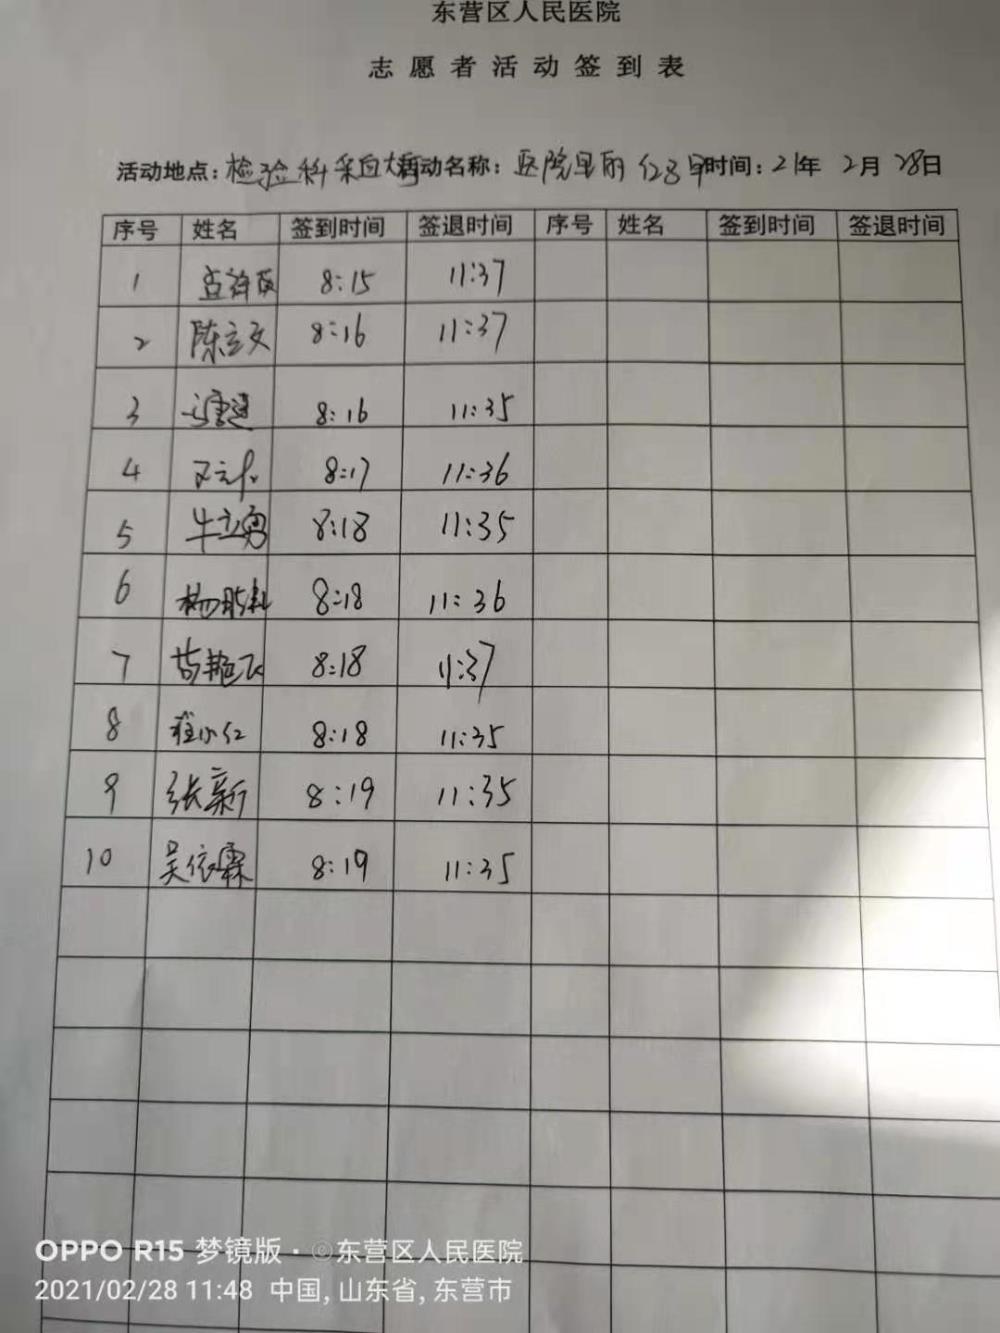 东营区人民医院
志愿者活动签到表
活动地点：检验科采血大厅 活动名称：医院里的 时间：21年 2月 28日
序号 姓名 签到时间 签退时间 序号 姓名 签到时间 签退时间
1 8:15 11:37
2 陈立文 8:16 11:37
3 8:16 11:35
4 8:17 11:36
5 牛立勇 8:18 11:35
6 8:18 11:36
7 8:18 11:37
8 8:18 11:35
9 张新 8:19 11:35
10 吴依霖 8:19 11:35
OPPO R15 梦镜版 · ©东营区人民医院
2021/02/28 11:48 中国, 山东省, 东营市